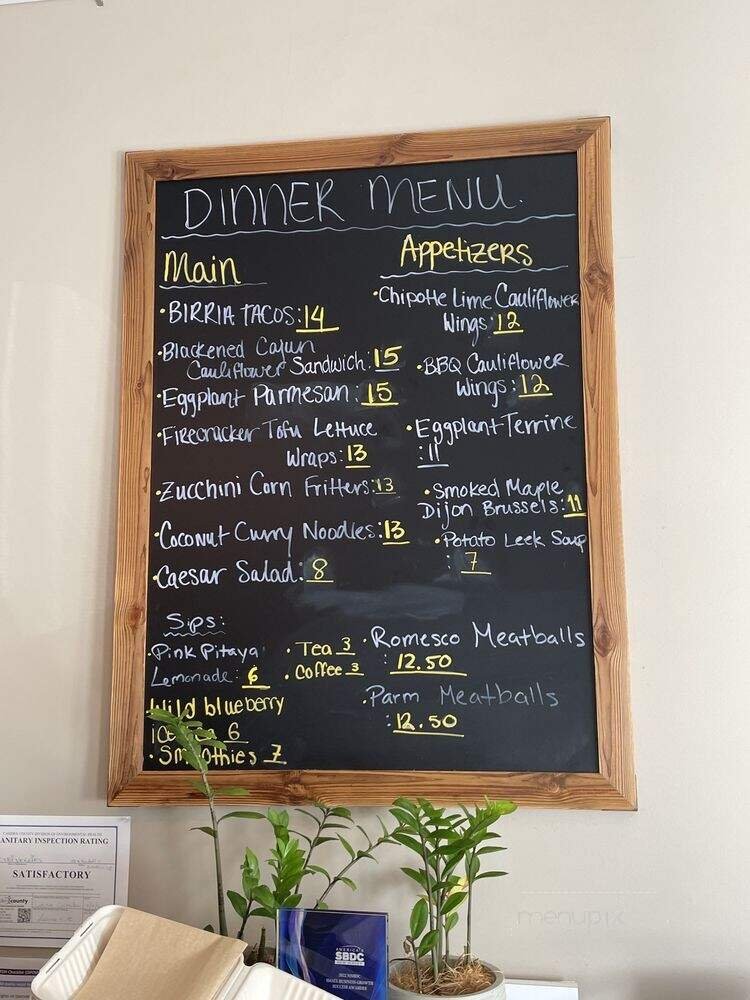 DINNER MENU.
Main
•BIRRIA TACOS: 14
•Blackened Cajun
Cauliflower Sandwich: 15
•Eggplant Parmesan: 15
•Firecracker Tofu Lettuce
Wraps: 13
•Zucchini Corn Fritters: 13
•Coconut Curry Noodles: 13
•Caesar Salad: 8
Appetizers
•Chipotle Lime Cauliflower
Wings: 12
•BBQ Cauliflower
Wings: 12
•Eggplant Terrine
: 11
•Smoked Maple
Dijon Brussels: 11
•Potato Leek Soup
: 7
•Romesco Meatballs
: 12.50
•Parm Meatballs
: 12.50
Sips:
•Pink Pitaya
Lemonade: 6
•Wild blueberry
6
•Smoothies 7
•Tea 3
•Coffee 3
CAMDEN COUNTY DIVISION OF ENVIRONMENTAL HEALTH
SANITARY INSPECTION RATING
SATISFACTORY
county
AMERICA'S
SBDC
NEW JERSEY
SUCCESS AWARDEE
menupix